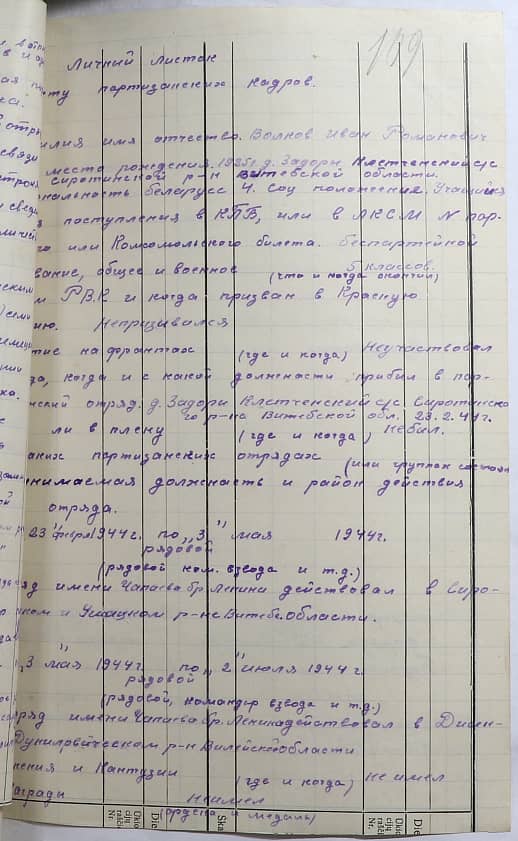 109
Личный листок
ту партизанских кадров.
илия имя отчество. Волков Иван Романович
место рождения. 1925г. д. Задоры Клетченский с/с
сиротинской р-н Витебской области.
ональность беларусс 4. Соц положения. Учащийся
поступления в КПБ, или в ЛКСМ N пар-
го или Комсомольского билета. беспартейной
вание, общее и военное 5 классов.
(что и когда окончил)
м Р.В.К и когда призван в Красную
ию. Непризывался
тие на франтах (где и когда) Неучаствовал
да, когда и с какой должности прибил в пар-
нский отряд. д. Задоры Клетченский с/с Сиротинско
го р-на Витебской обл. 23.2.44г.
ли в плену (где и когда) небил.
аких партизанских отрядах (или группах состоял
нимаемая должность и район действия
отряда.
23 " февр 1944г. по „3" мая 1944г.
рядовой
(рядовой ком. взвода и т.д.)
яд имени Чапаева бр. Ленина действовал в Сиро-
ком и Ушацком р-не Витебс. области.
„3 мая 1944г. по „2" июля 1944г.
рядовой
(рядовой, командир взвода и т.д.)
ряд имени Чапаева бр. Ленина действовал в Дисен-
Дуниловическом р-не Вилейской области
нения и Кантузии (где и когда) не имел
аграды неимел
(ордена и медаль)